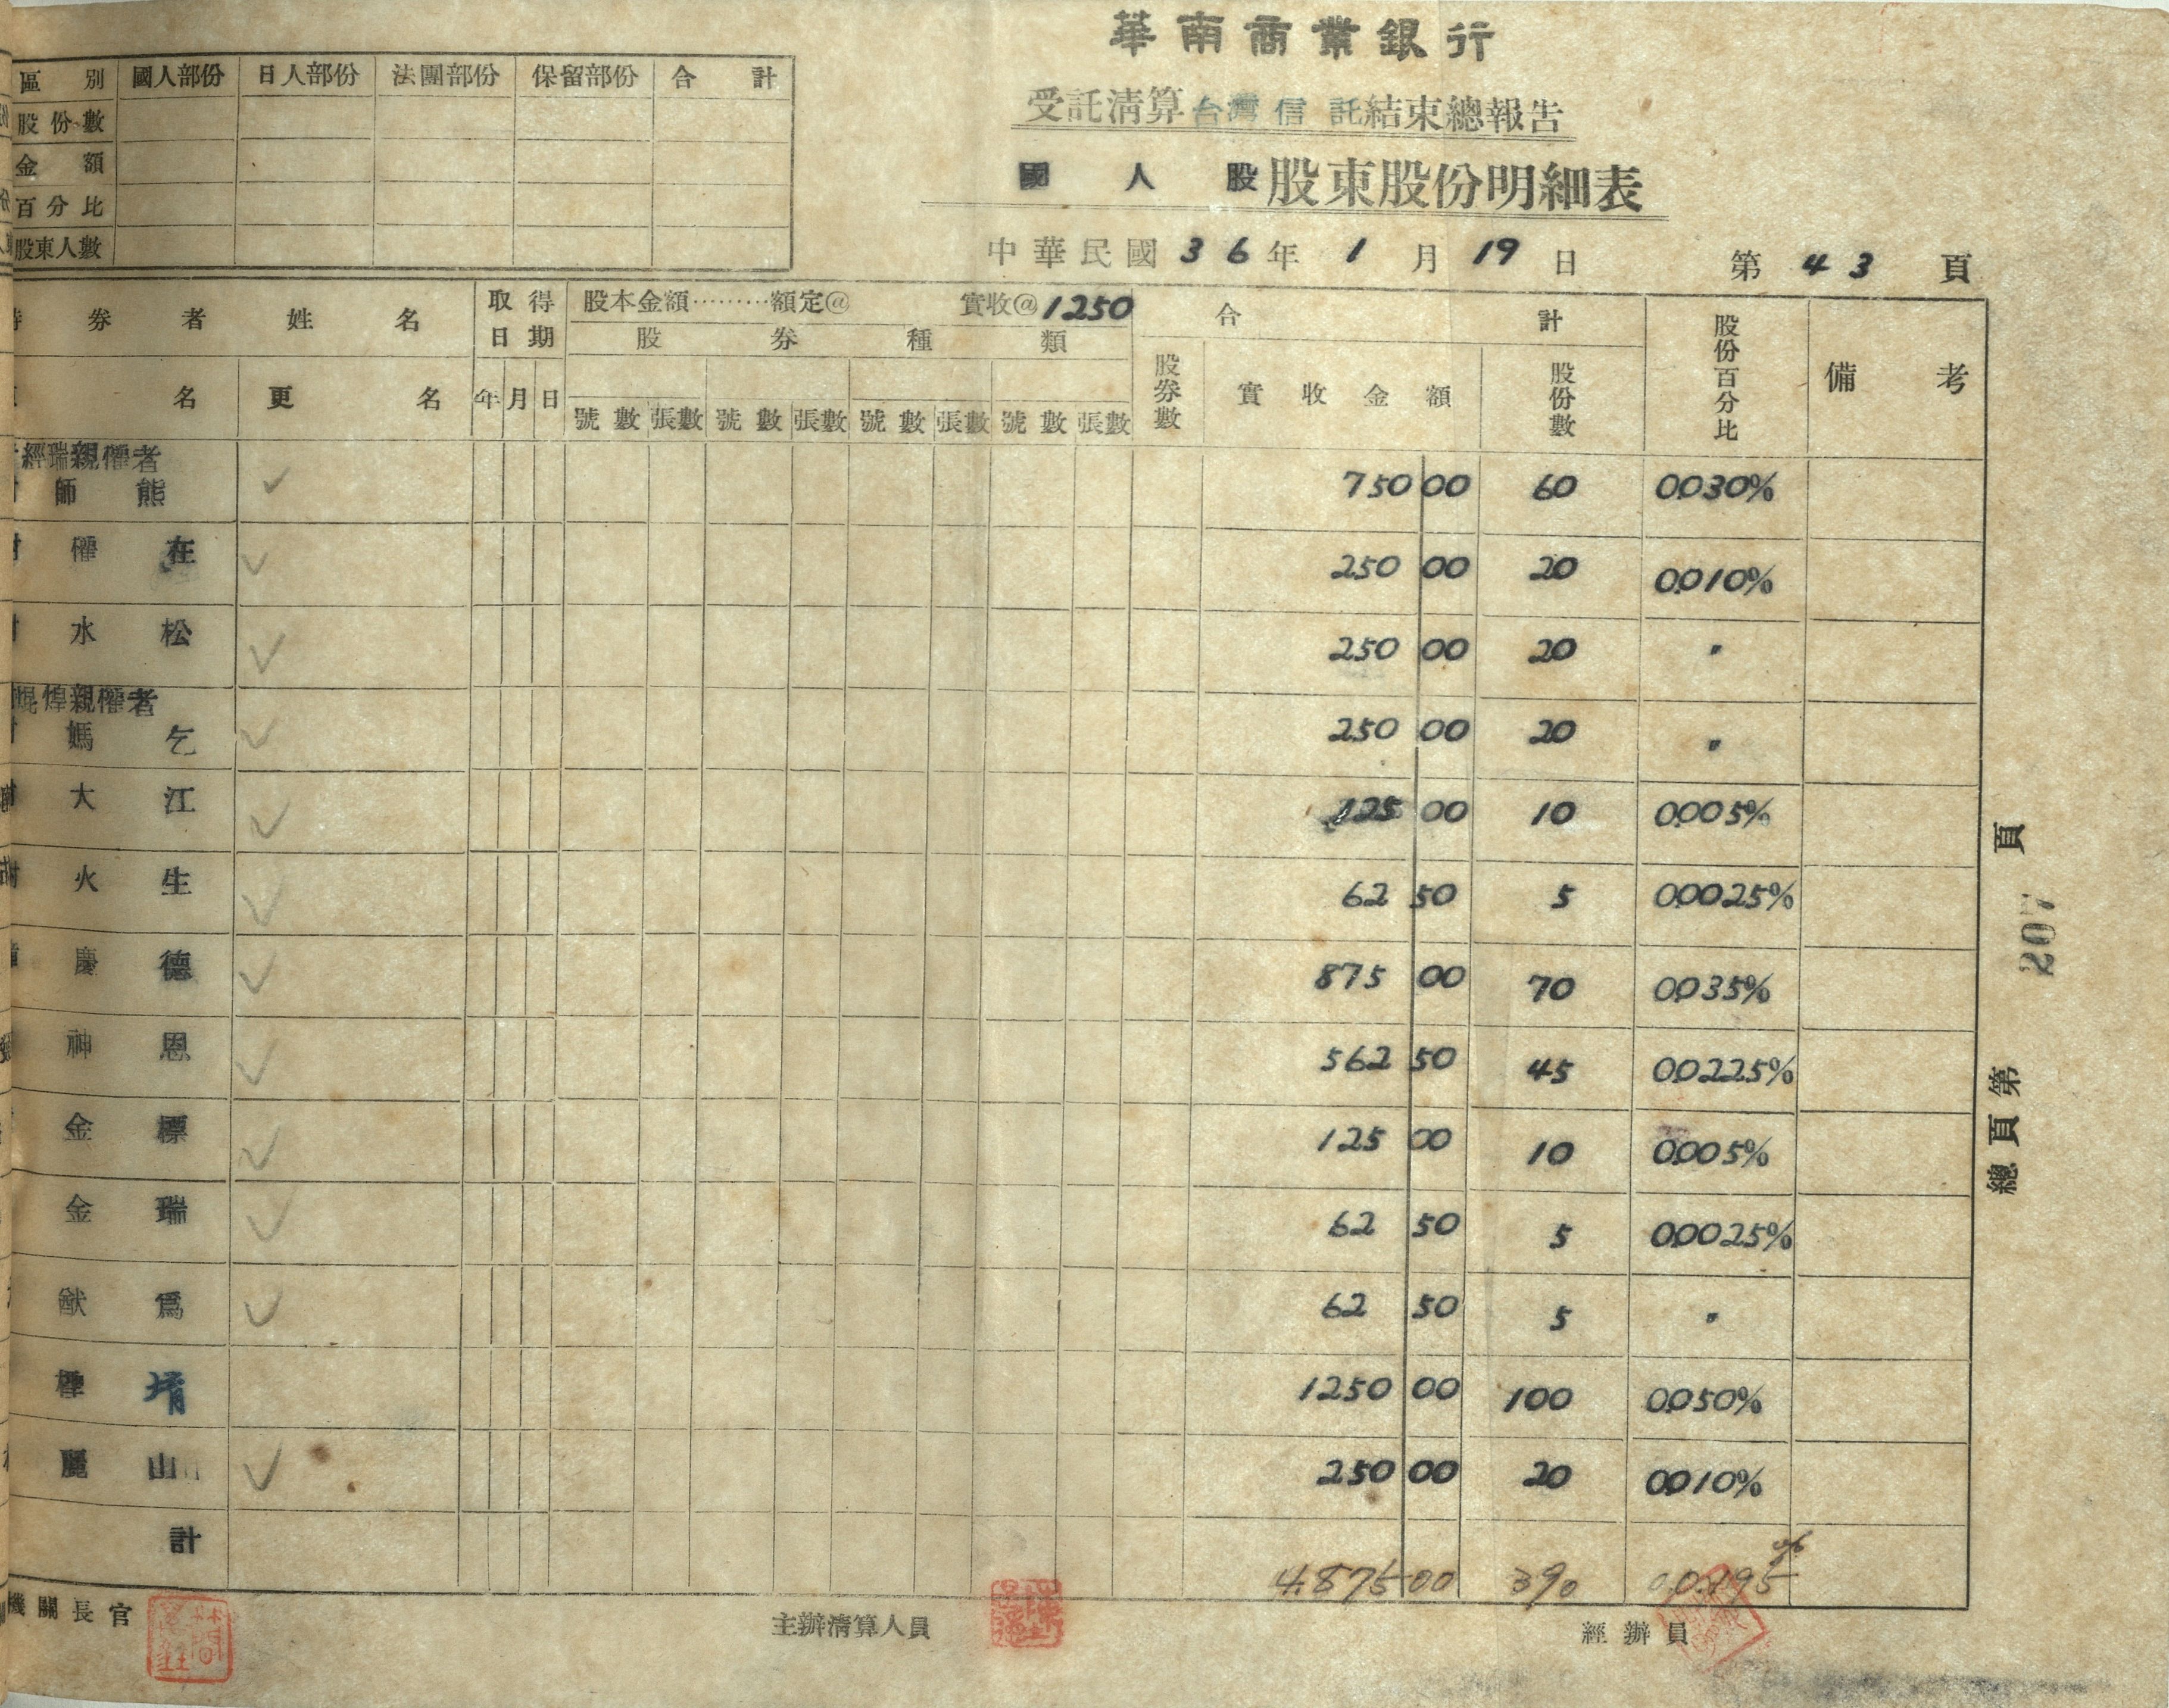 華南商業銀行
受託清算台灣信託結束總報告
國人股股東股份明細表
中華民國36年1月19日 第43頁
區別 國人部份 日人部份 法團部份 保留部份 合計
股份數
金額
百分比
股東人數
券者姓名 取得日期 股本金額………額定@ 實收@1250 合計 股份百分比 備考
股券種類
名 更名 年 月 日 號數 張數 號數 張數 號數 張數 號數 張數 股券數 實收金額 股份數
經瑞親權者
師熊 ✓ 750 00 60 0.030%
權在 ✓ 250 00 20 0.010%
水松 ✓ 250 00 20 〃
焜煌親權者
媽乞 ✓ 250 00 20 〃
大江 ✓ 125 00 10 0.005%
火生 ✓ 62 50 5 0.0025%
慶德 ✓ 875 00 70 0.035%
神恩 ✓ 562 50 45 0.0225%
金標 ✓ 125 00 10 0.005%
金瑞 ✓ 62 50 5 0.0025%
猷為 ✓ 62 50 5 〃
堉 1250 00 100 0.050%
麗山 ✓ 250 00 20 0.010%
計 4,875 00 390 0.0.195%
機關長官 主辦清算人員 經辦員
總頁第207頁